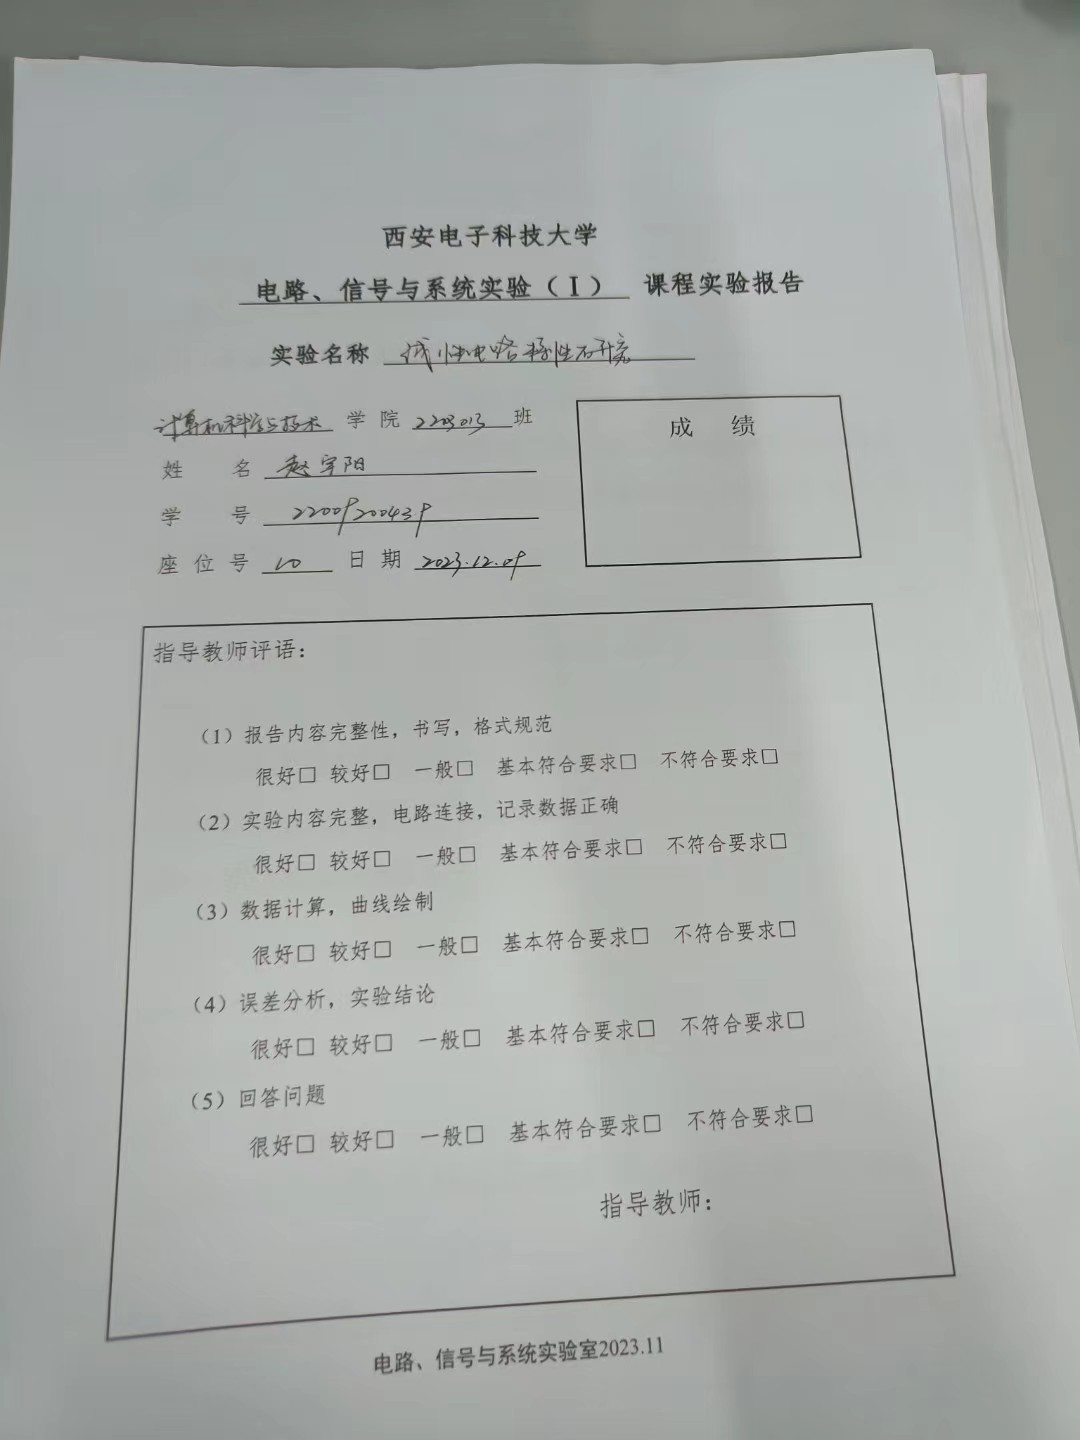 西安电子科技大学
电路、信号与系统实验(Ⅰ) 课程实验报告
实验名称 线性电路特性研究
计算机科学与技术 学院 2203013 班
成 绩
姓 名 赵宇阳
学 号 22009200439
座位号 10 日期 2023.12.09
指导教师评语：
(1)报告内容完整性，书写，格式规范
很好□ 较好□ 一般□ 基本符合要求□ 不符合要求□
(2)实验内容完整，电路连接，记录数据正确
很好□ 较好□ 一般□ 基本符合要求□ 不符合要求□
(3)数据计算，曲线绘制
很好□ 较好□ 一般□ 基本符合要求□ 不符合要求□
(4)误差分析，实验结论
很好□ 较好□ 一般□ 基本符合要求□ 不符合要求□
(5)回答问题
很好□ 较好□ 一般□ 基本符合要求□ 不符合要求□
指导教师：
电路、信号与系统实验室2023.11